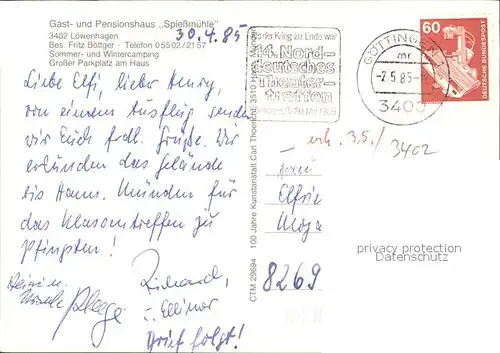 Gast- und Pensionshaus „Spießmühle"
3402 Löwenhagen
Bes. Fritz Böttger · Telefon 0 55 02 / 21 57
Sommer- und Wintercamping
Großer Parkplatz am Haus
30.4.85
Liebe Elfi, lieber Henry,
von einem Ausflug senden
wir Euch frdl. Grüße. Wir
erkunden das Gelände
bis Hann. Münden für
das Klassentreffen zu
Pfingsten!
Richard,
u. Ellinor
Brief folgt!
CTM 29694 100 Jahre Kunstanstalt Carl Thoericht, 3510 Hann. Münden
Krieg zu Ende war
14. Nord-
deutsches
Theater-
treffen
GÖTTINGEN
mr
-2.5.85-
3400
60
DEUTSCHE BUNDESPOST
erh. 3.5./
3402
Elfrie
8269
privacy protection
Datenschutz